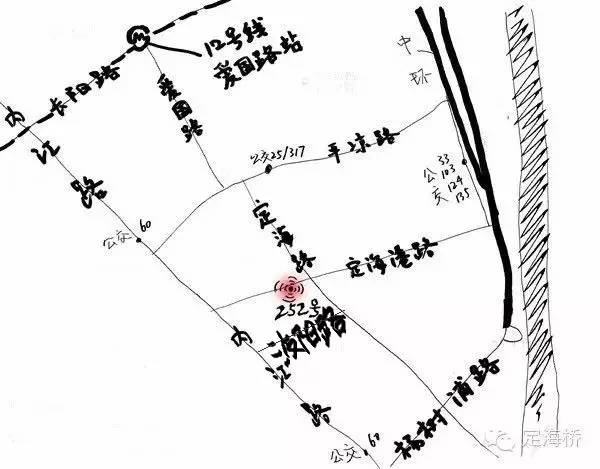 12号线
爱国路站
长阳路
爱国路
内江路
中环
公交25/317
平凉路
公交
33
103
124
135
公交60
定海路
定海港路
252号
波阳路
内江路
杨树浦路
公交60
定海桥